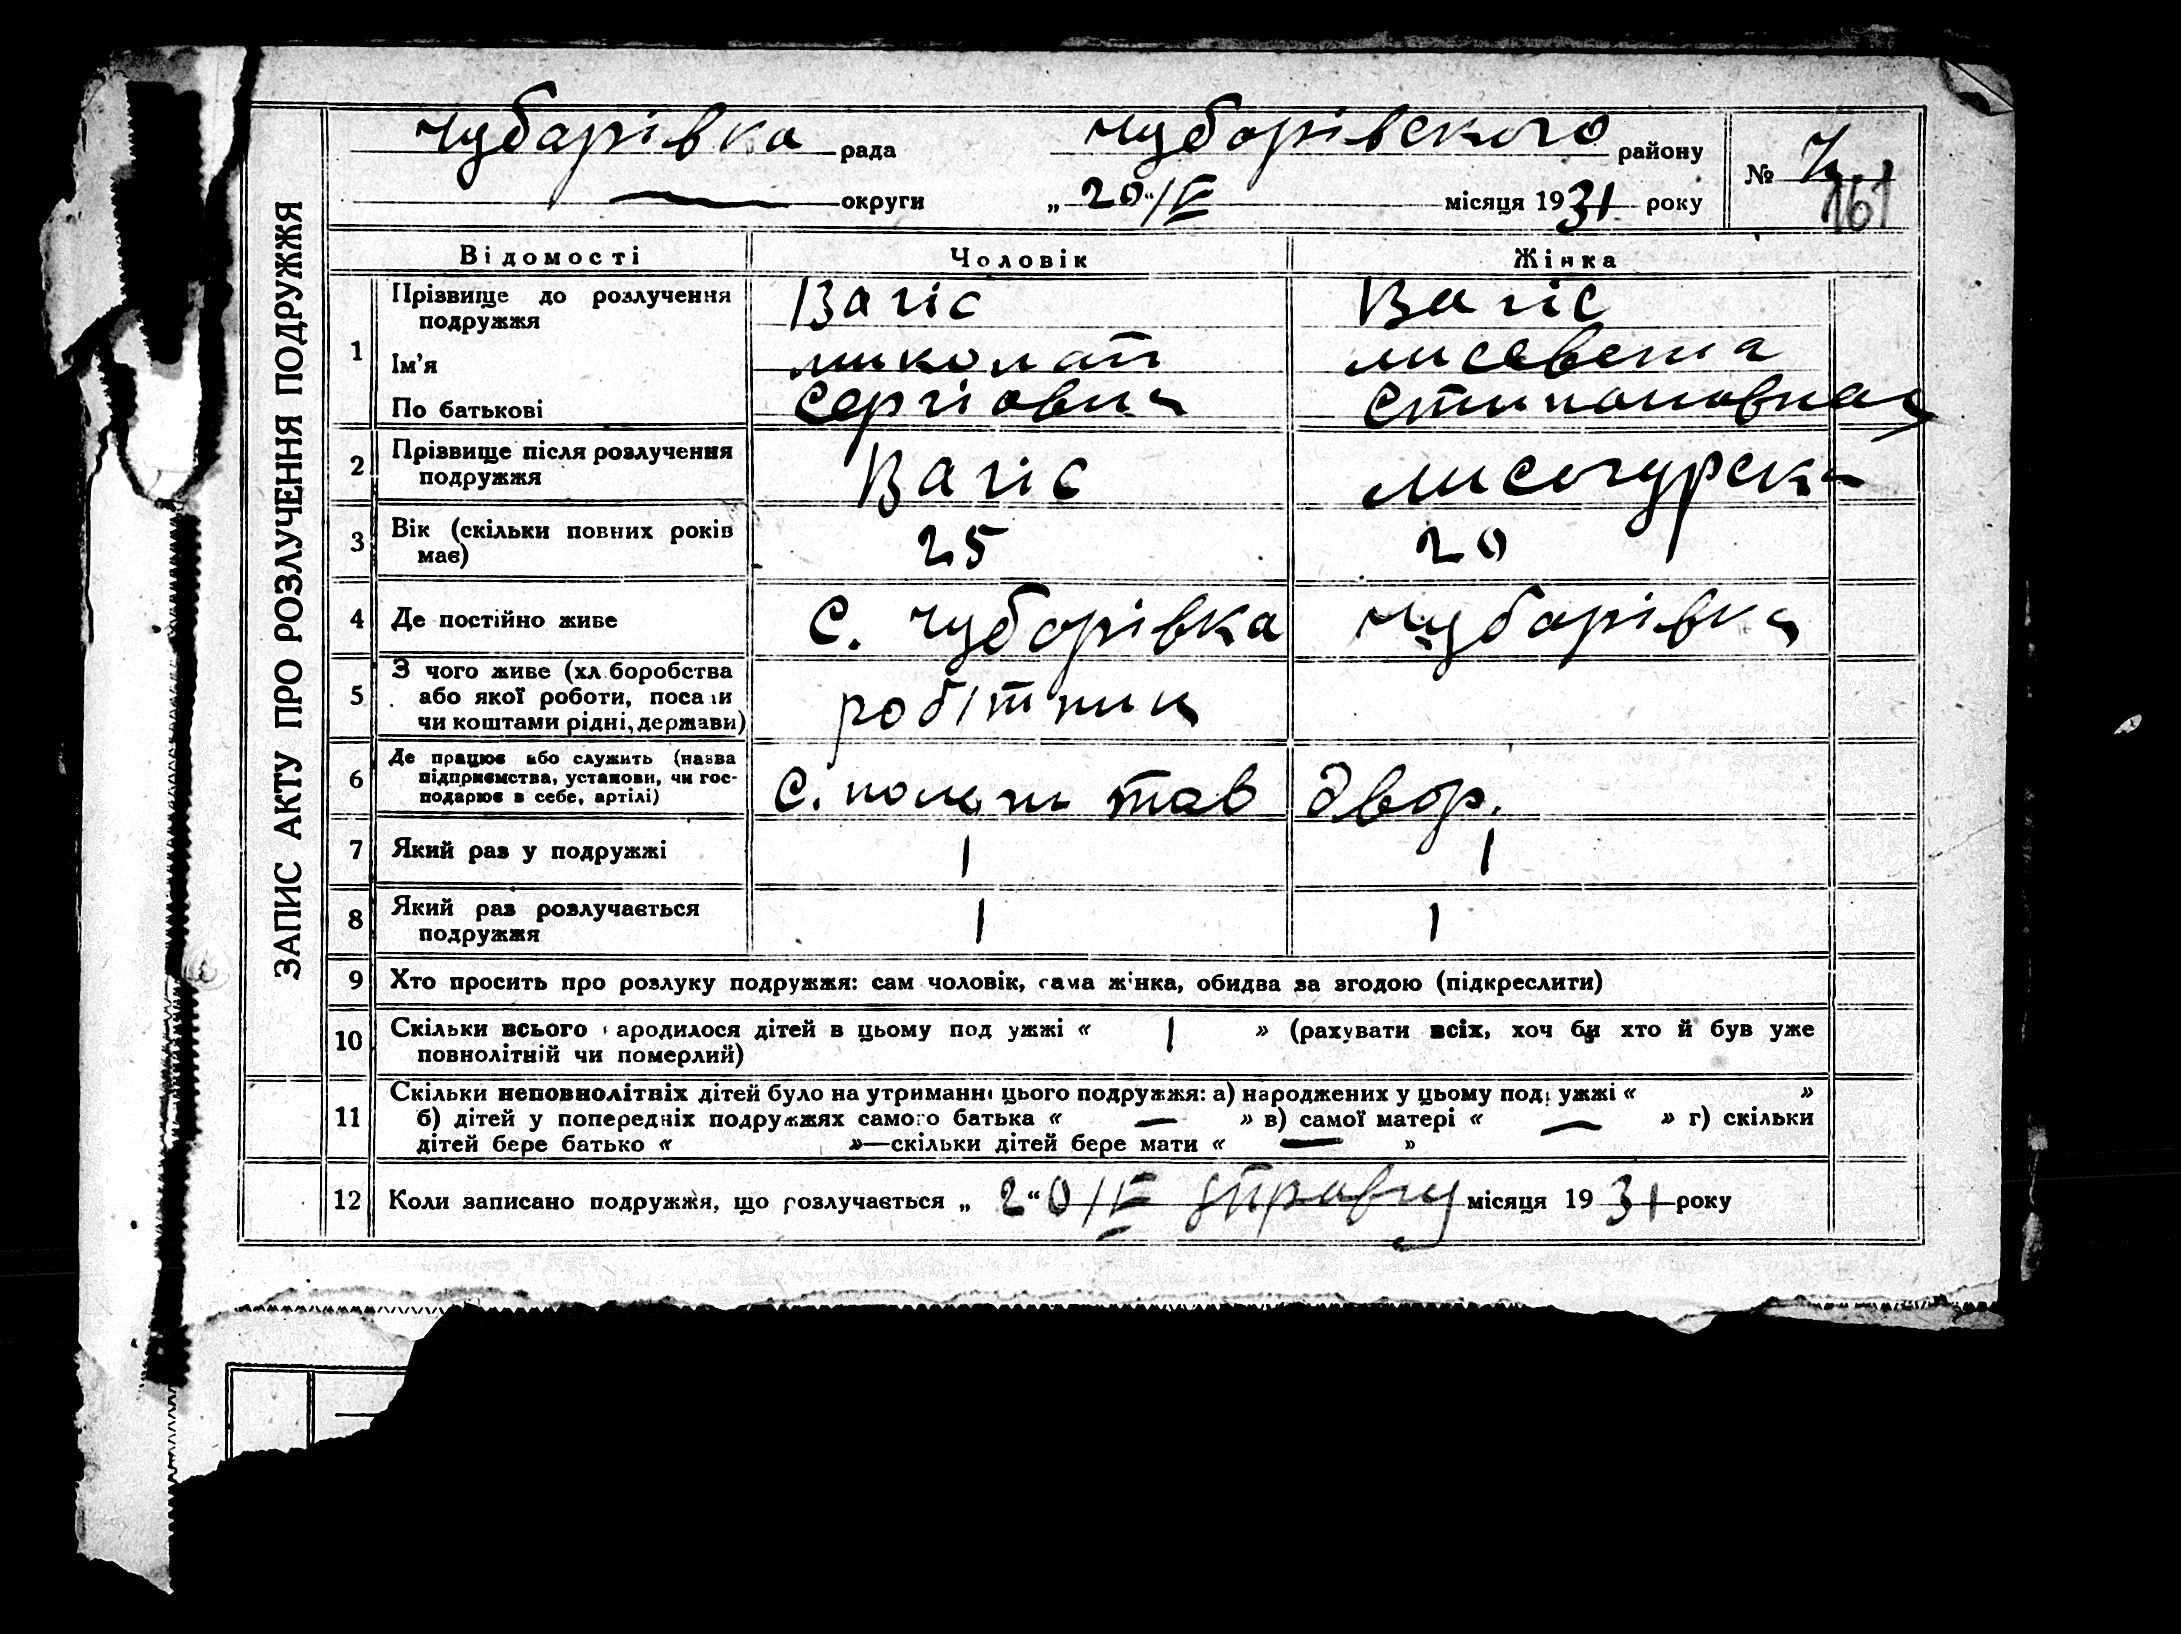 ЗАПИС АКТУ ПРО РОЗЛУЧЕННЯ ПОДРУЖЖЯ
Чубарівка рада Чубарівского району
округи „20“/IV місяця 1931 року
№ 161
Відомості Чоловік Жінка
1 Прізвище до розлучення подружжя Вагіс Вагіс
Ім'я Миколай Лисавета
По батькові Сергіович
2 Прізвище після розлучення подружжя Вагіс
3 Вік (скільки повних років має) 25 20
4 Де постійно живе С. Чуборівка Чубарівка
5 З чого живе (хл боробства або якої роботи, посади чи коштами рідні, держави) робітник
6 Де працює або служить (назва підприємства, установи, чи господарює в себе, артілі) двор.
7 Який раз у подружжі 1 1
8 Який раз розлучається подружжя 1 1
9 Хто просить про розлуку подружжя: сам чоловік, сама жінка, обидва за згодою (підкреслити)
10 Скільки всього народилося дітей в цьому подружжі « 1 » (рахувати всіх, хоч би хто й був уже
повнолітній чи померлий)
11 Скільки неповнолітніх дітей було на утриманні цього подружжя: а) народжених у цьому подружжі « »
б) дітей у попередніх подружжях самого батька « — » в) самої матері « — » г) скільки
дітей бере батько « »—скільки дітей бере мати « — »
12 Коли записано подружжя, що розлучається „ 20“/IV місяця 1931 року